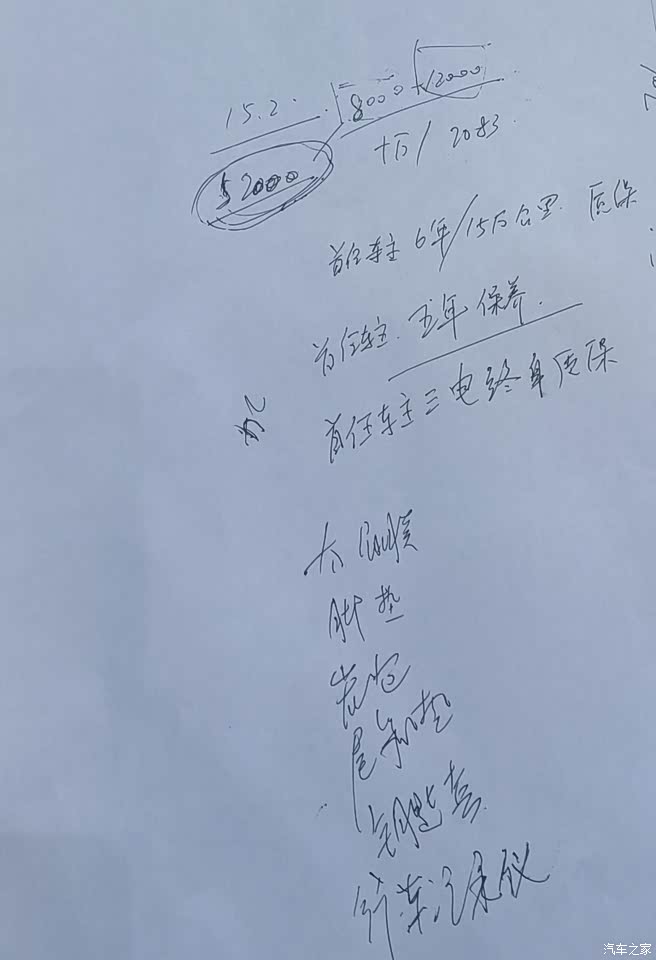 15.2. 8000+12000
52000 十万/2083.
首任车主 6年/15万公里 质保
首任车主. 五年保养.
首任车主三电终身质保
太阳膜
脚垫
尾箱垫
钥匙套
行车记录仪
汽车之家